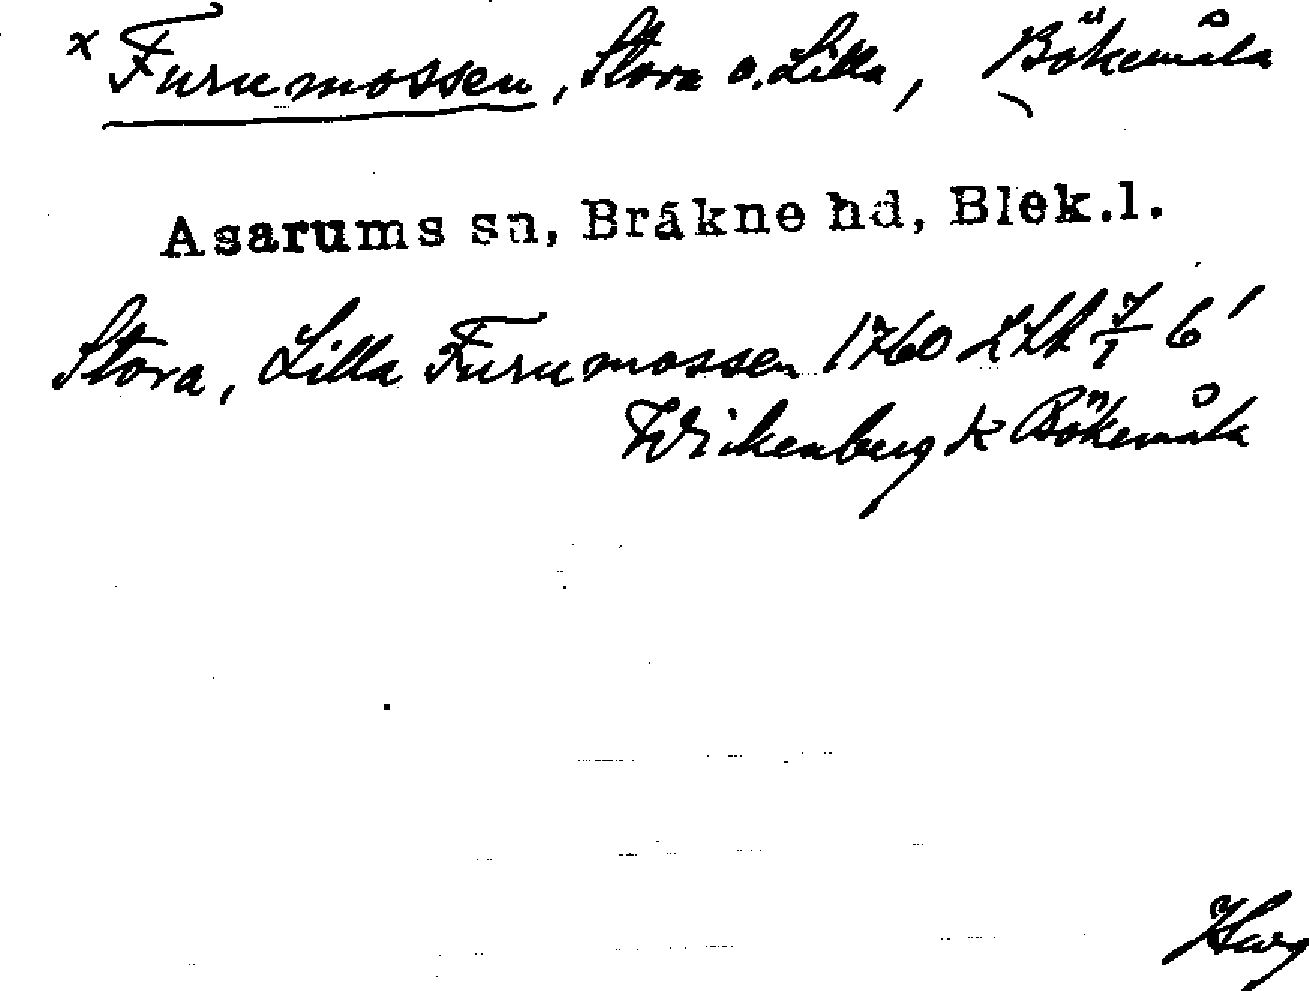 x Furumossen, Stora o. Lilla, Bökemåla
Asarums sn, Bräkne hd, Blek.l.
Stora, Lilla Furumossen 1760 LLA 7/1 6'
Wikenberg k Bökemåla